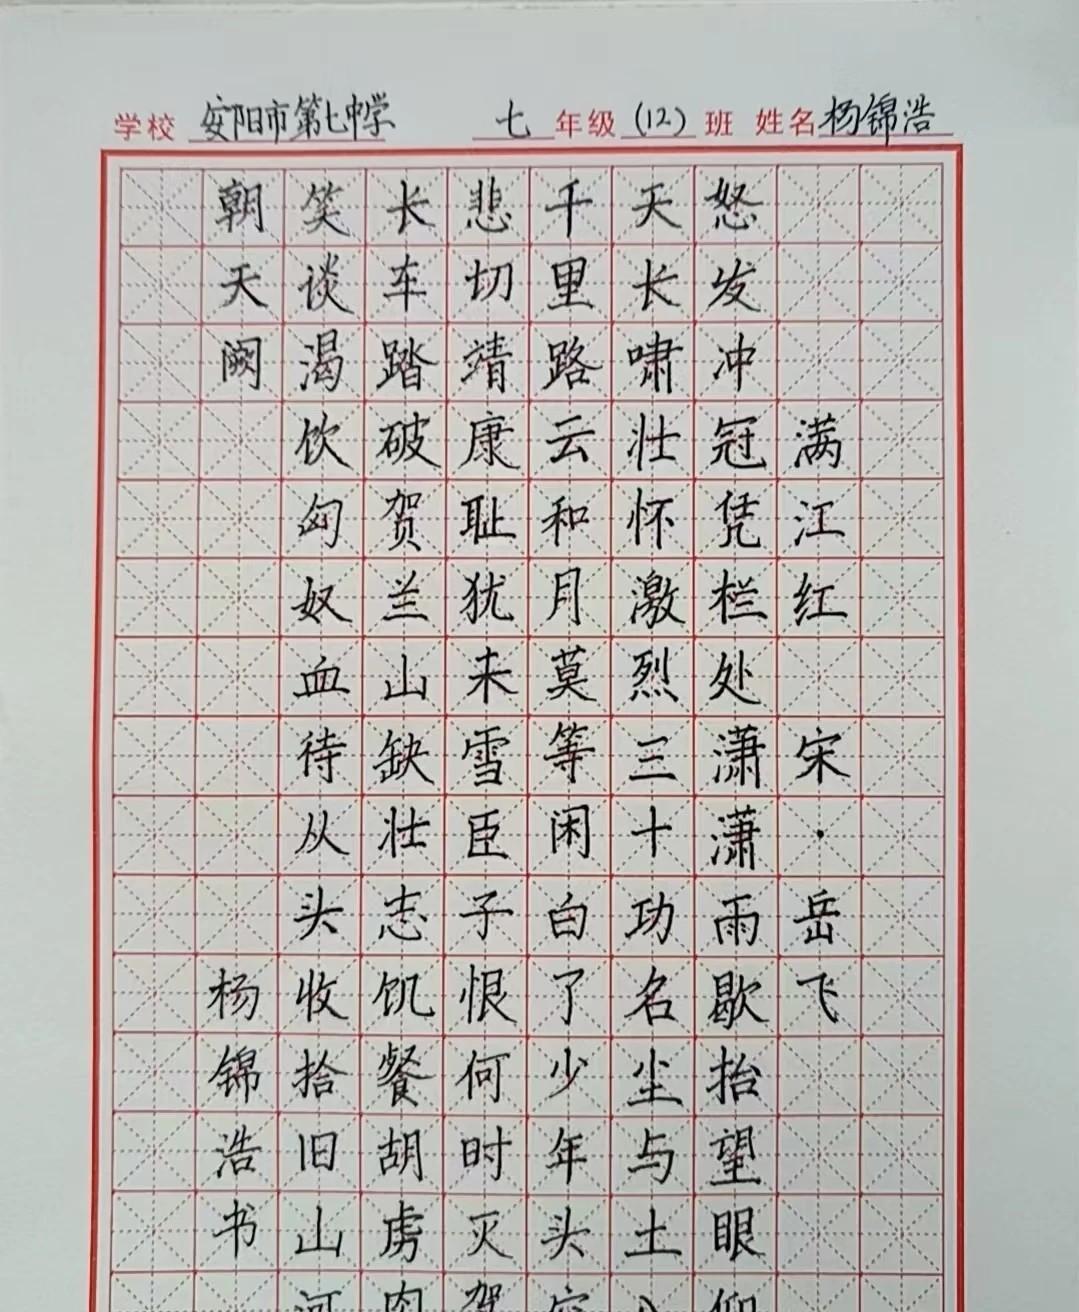 学校 安阳市第七中学 七 年级 (12) 班 姓名 杨锦浩
满江红 宋·岳飞
怒发冲冠凭栏处潇潇雨歇抬望眼仰
天长啸壮怀激烈三十功名尘与土八
千里路云和月莫等闲白了少年头空
悲切靖康耻犹未雪臣子恨何时灭驾
长车踏破贺兰山缺壮志饥餐胡虏肉
笑谈渴饮匈奴血待从头收拾旧山河
朝天阙 杨锦浩书